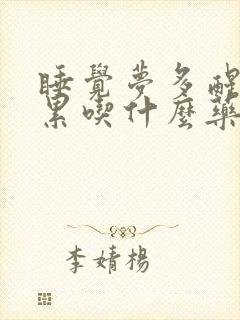 睡覺夢多醒
累喫什麼藥
李婧楊